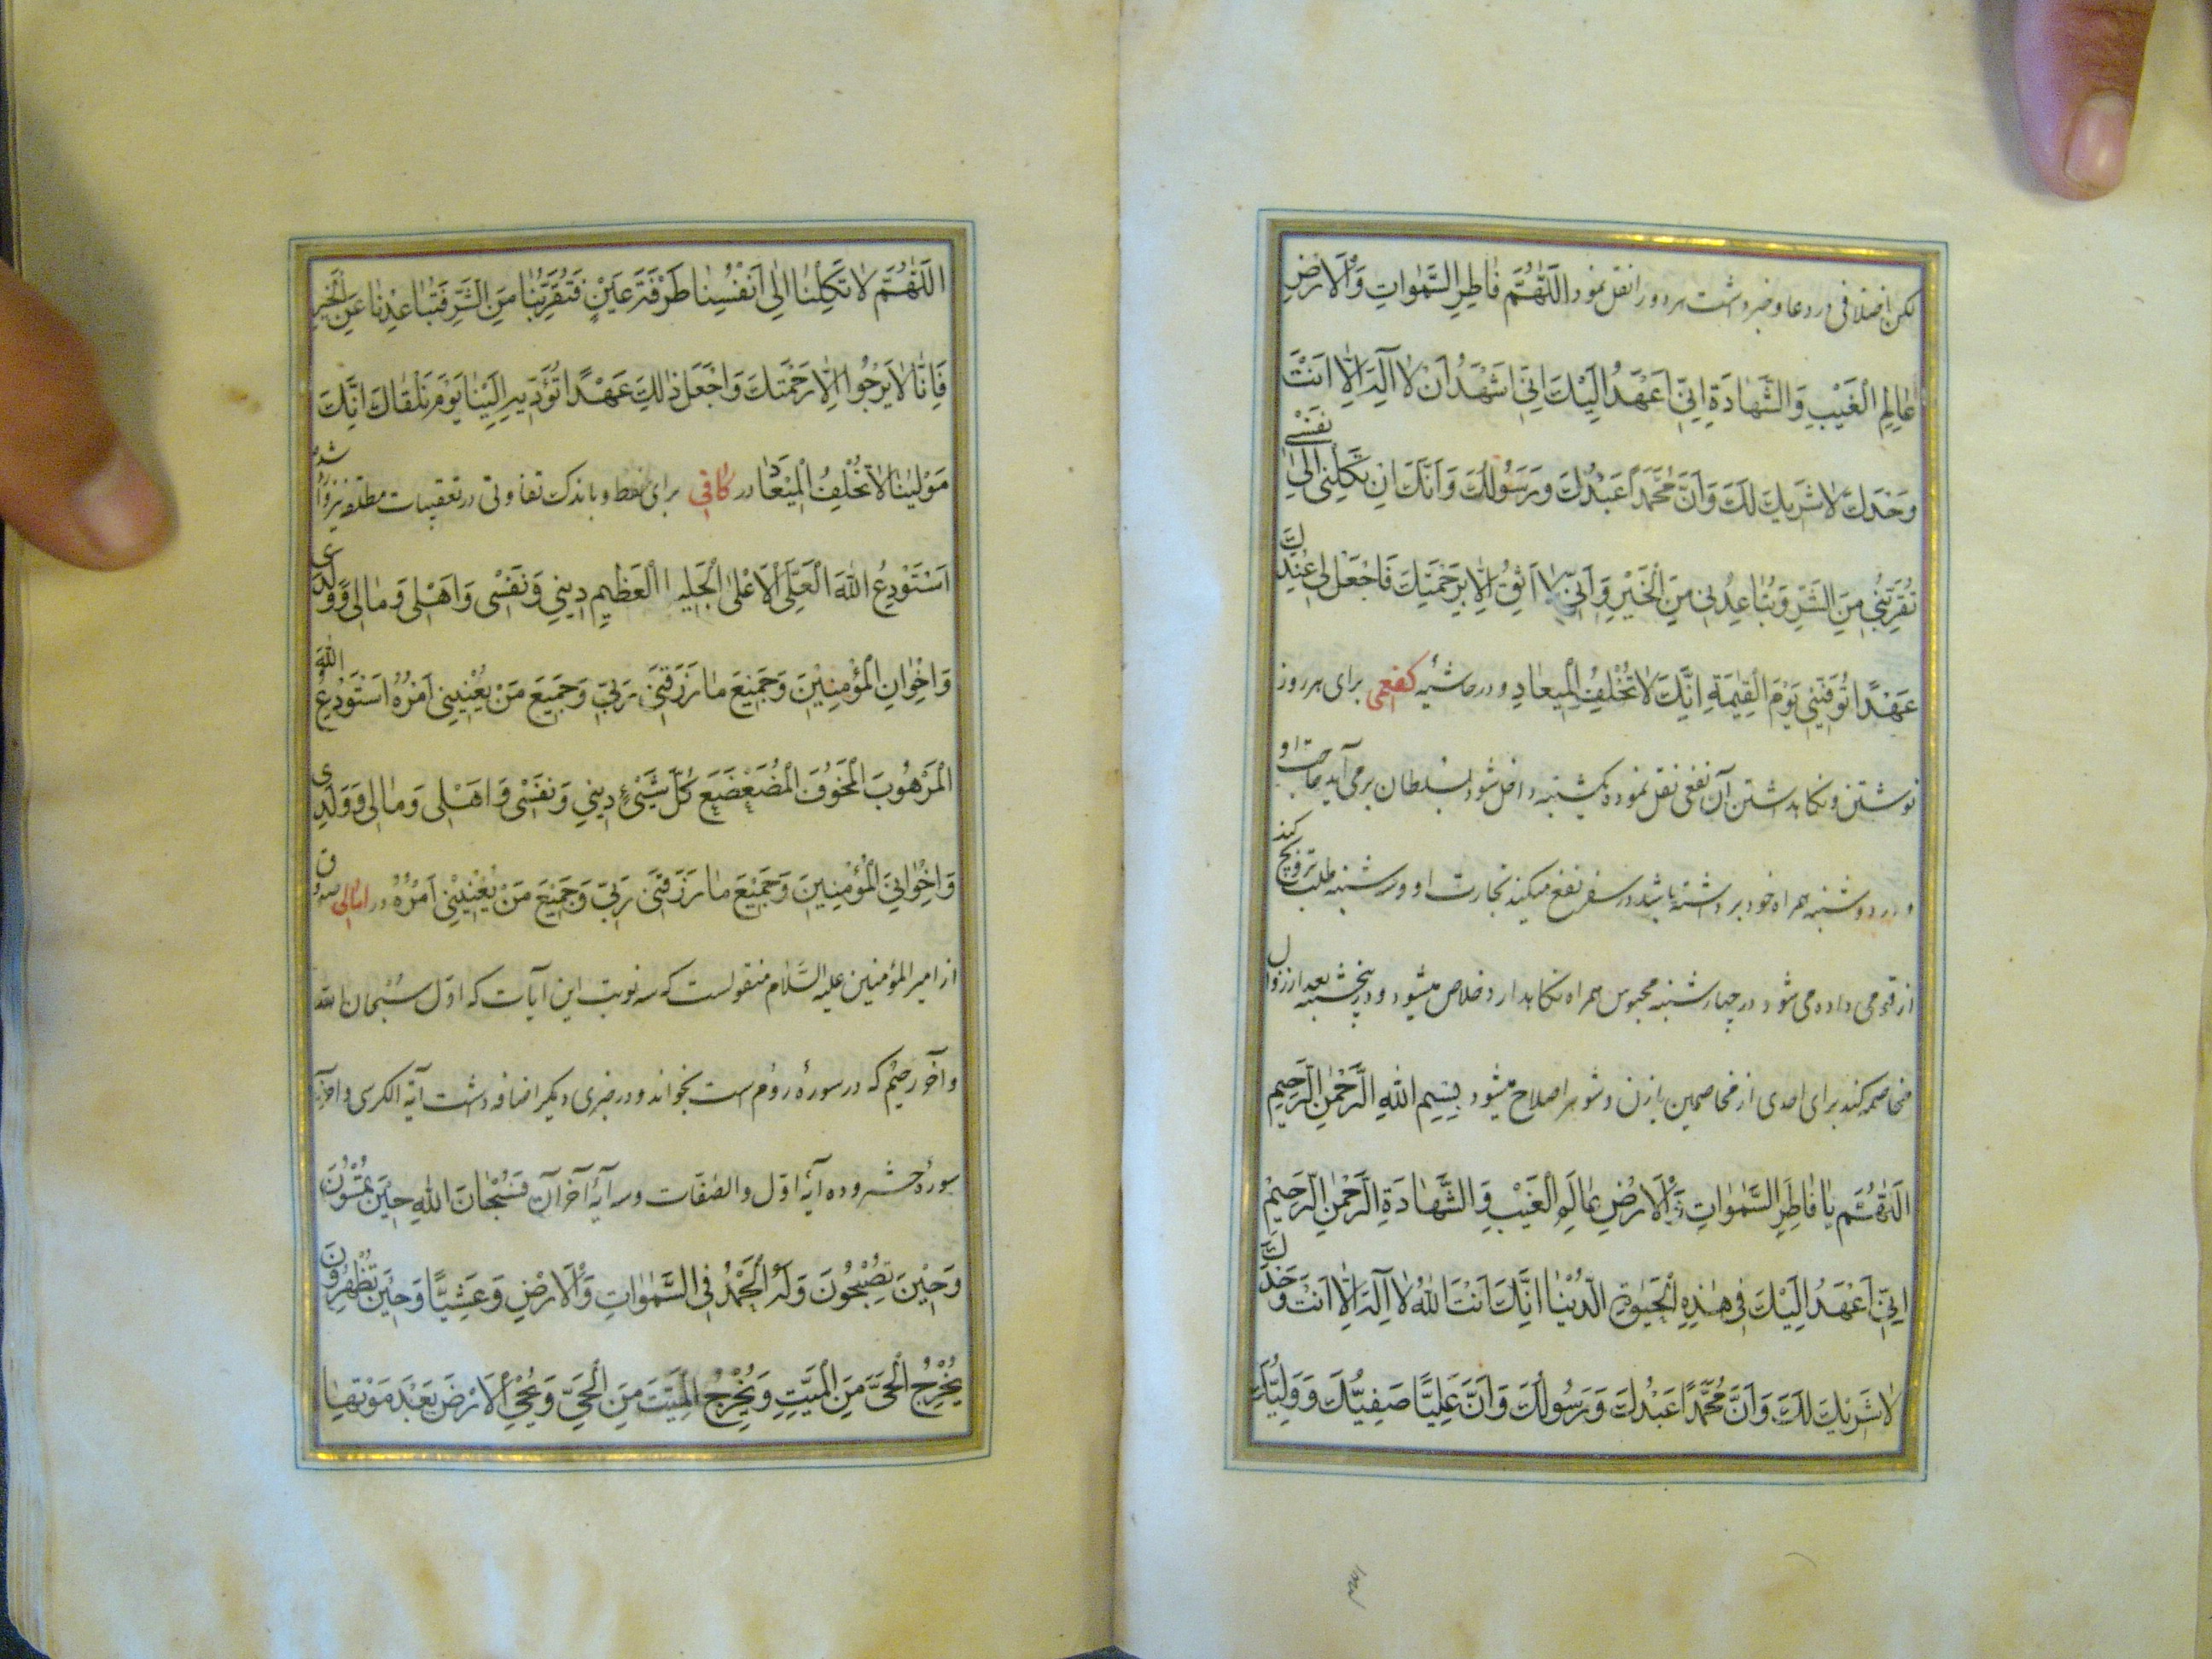 لکن اختلافی در دعا و خبر داشت هر دو را نقل نمود اَللّٰهُمَّ فٰاطِرِ السَّمٰوٰاتِ وَالْاَرْضِ
عٰالِمِ الْغَيْبِ وَالشَّهٰادَةِ اِنّٖي اَعْهَدُ اِلَيْكَ اِنّٖي اَشْهَدُ اَنْ لٰا اٰلِهَ اِلّٰا اَنْتَ
وَحْدَكَ لٰا شَرٖيكَ لَكَ وَاَنَّ مُحَمَّدًا عَبْدُكَ وَرَسُولُكَ وَاَنَّكَ اِنْ تَكِلْنٖي اِلٰى نَفْسٖي
تُقَرِّبْنٖي مِنَ الشَّرِّ وَتُبٰاعِدْنٖي مِنَ الْخَيْرِ وَاَنّٖي لٰا اَثِقُ اِلّٰا بِرَحْمَتِكَ فَاجْعَلْ لٖي عِنْدَكَ
عَهْدًا تُوَفّٖينٖيهِ يَوْمَ الْقِيٰمَةِ اِنَّكَ لٰا تُخْلِفُ الْمٖيعٰادِ و در حاشیهٔ کفعمی برای هر روز
نوشتن و نگاهداشتن آن نفعی نقل نموده یکشنبه داخل شود بسلطان برمی‌آید حاجت او
و در دوشنبه همراه خود برداشته باشد در سفر نفع میکند تجارت او و سه شنبه طلب تزویج کند
از قومی داده می شود در چهارشنبه محبوس همراه نگاهدارد خلاص میشود و در پنجشنبه بعد از زوال
مخاصمه کند برای احدی از مخاصمین یا زن و شوهر اصلاح میشود بِسْمِ اللهِ الرَّحْمٰنِ الرَّحٖيمِ
اَللّٰهُمَّ يٰا فٰاطِرَ السَّمٰوٰاتِ وَالْاَرْضِ عٰالِمَ الْغَيْبِ وَالشَّهٰادَةِ الرَّحْمٰنِ الرَّحٖيمِ
اِنّٖي اَعْهَدُ اِلَيْكَ فٖي هٰذِهِ الْحَيٰوةِ الدُّنْيٰا اِنَّكَ اَنْتَ اللهُ لٰا اٰلِهَ اِلّٰا اَنْتَ وَحْدَكَ
لٰا شَرٖيكَ لَكَ وَاَنَّ مُحَمَّدًا عَبْدُكَ وَرَسُولُكَ وَاَنَّ عَلِيًّا صَفِيُّكَ وَوَلِيُّكَ
اَللّٰهُمَّ لٰا تَكِلْنٰا اِلٰى اَنْفُسِنٰا طَرْفَةَ عَيْنٍ فَتُقَرِّبُنٰا مِنَ الشَّرِّ فَتُبٰاعِدْنٰا عَنِ الْخَيْرِ
فَاِنّٰا لٰا يَرْجُوا اِلّٰا رَحْمَتَكَ وَاجْعَلْ ذٰلِكَ عَهْدًا تُؤَدّٖيهِ اِلَيْنٰا يَوْمَ نَلْقٰاكَ اِنَّكَ
مَوْلٰينٰا لٰا تُخْلِفُ الْمٖيعٰادَ در کافی برای حفظ و باندک تفاوتی در تعقیبات مطلقه نیز وارد شده
اَسْتَوْدِعُ اللهَ الْعَلِيَّ الْاَعْلٰى الْجَلٖيلَ الْعَظٖيمِ دٖينٖي وَنَفْسٖي وَاَهْلٖي وَمٰالٖي وَوَلَدٖي
وَاِخْوٰانِ الْمُؤْمِنٖينَ وَجَمٖيعَ مٰا رَزَقَنٖي رَبّٖي وَجَمٖيعَ مَنْ يُعْنٖينٖي اَمْرُهُ اَسْتَوْدِعُ اللهَ
الْمَرْهُوبَ الْمَخُوفَ الْمُضَعْضَعَ كُلَّ شَيْئٍ دٖينٖي وَنَفْسٖي وَاَهْلٖي وَمٰالٖي وَوَلَدٖي
وَاِخْوٰانِيَ الْمُؤْمِنٖينَ وَجَمٖيعَ مٰا رَزَقَنٖي رَبّٖي وَجَمٖيعَ مَنْ يُعْنٖينٖي اَمْرُهُ در امالی صدوق
از امیرالمؤمنین علیه السَّلام منقولست که سه نوبت این آیات که اوّل سُبْحان الله
و آخر رحیم که در سورهٔ روم است بخواند و در خبری دیگر اضافه داشت آیة الکرسی و آخر
سورهٔ حشر و ده آیهٔ اوّل والصّفّات و سه آیهٔ آخر آن فَسُبْحٰانَ اللهِ حٖينَ تُمْسُونَ
وَحٖينَ تُصْبِحُونَ وَلَهُ الْحَمْدُ فِي السَّمٰوٰاتِ وَالْاَرْضِ وَعَشِيًّا وَحٖينَ تُظْهِرُونَ
يُخْرِجُ الْحَيَّ مِنَ الْمَيِّتِ وَيُخْرِجُ الْمَيِّتَ مِنَ الْحَيِّ وَيُحْيِ الْاَرْضَ بَعْدَ مَوْتِهٰا